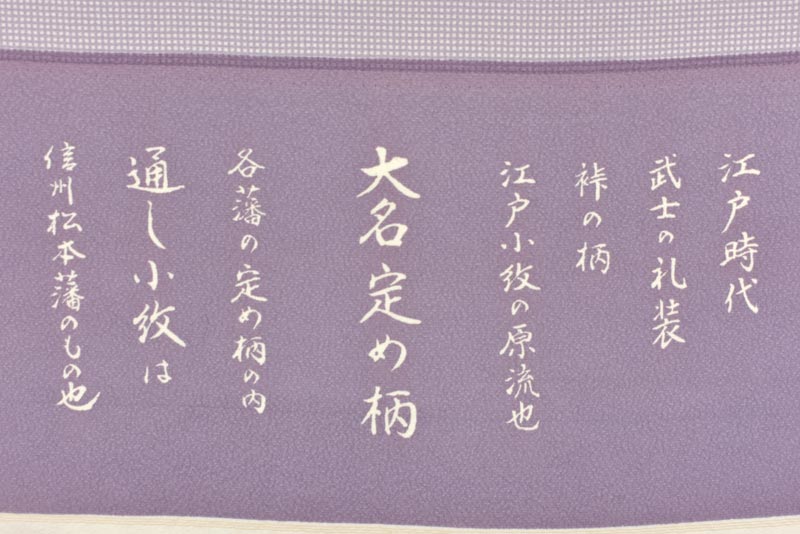 江戸時代
武士の礼装
裃の柄
江戸小紋の原流也
大名定め柄
各藩の定め柄の内
通し小紋は
信州松本藩のもの也